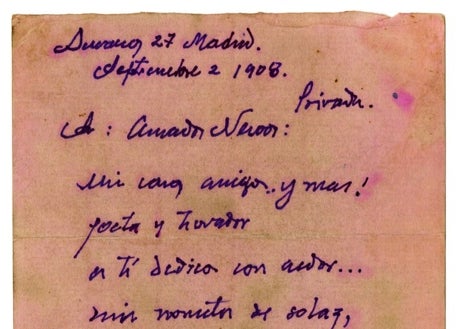 27 Madrid.
Septiembre 2 1908.
Privada.
A: Amador Nervo:
Mi caro amigo.. y mas!
poeta y trovador
a tí dedico con ardor...
mis de solaz,